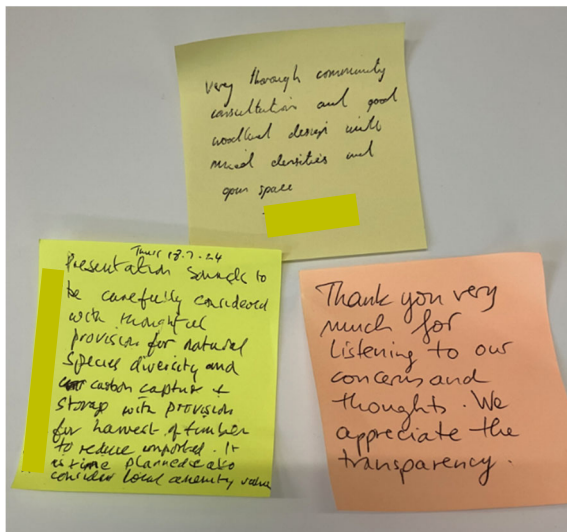 Very thorough community
consultation and good
woodland design with
mixed densities and
open space
Thurs 18.7.24
Presentation sounds to
be carefully considered
with thoughtful
provision for natural
species diversity and
carbon capture +
storage with provision
for harvest of timber
to reduce imported. It
is time planners also
consider local amenity value
Thank you very
much for
listening to our
concerns and
thoughts. We
appreciate the
transparency.